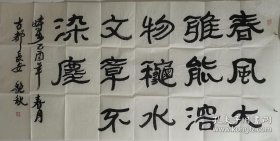 春風大
雅能溶
物穐水
文章不
染塵
乙酉年春月
古都長安